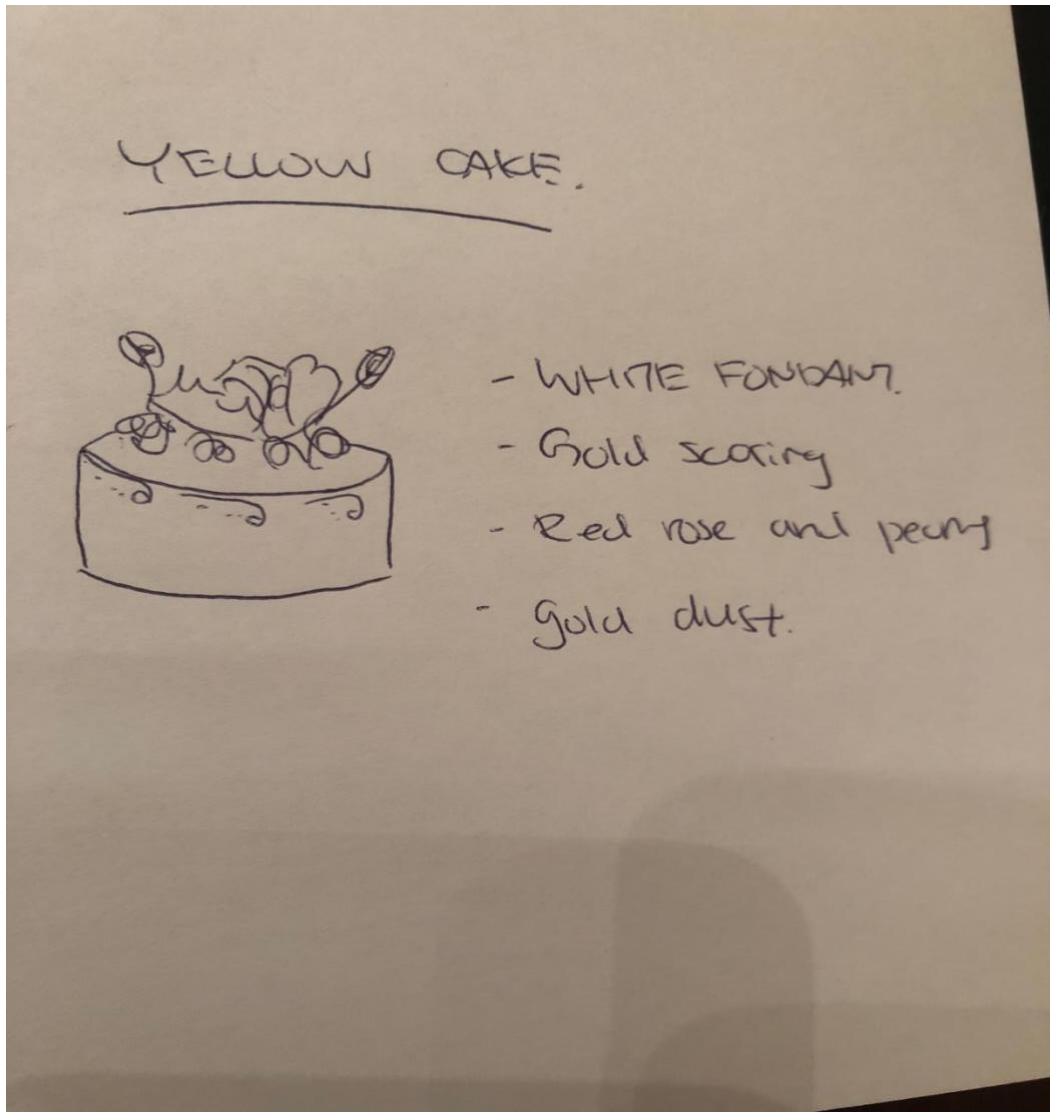 YELLOW CAKE.
- WHITE FONDANT.
- Gold scoring
- Red rose and peony
- gold dust.